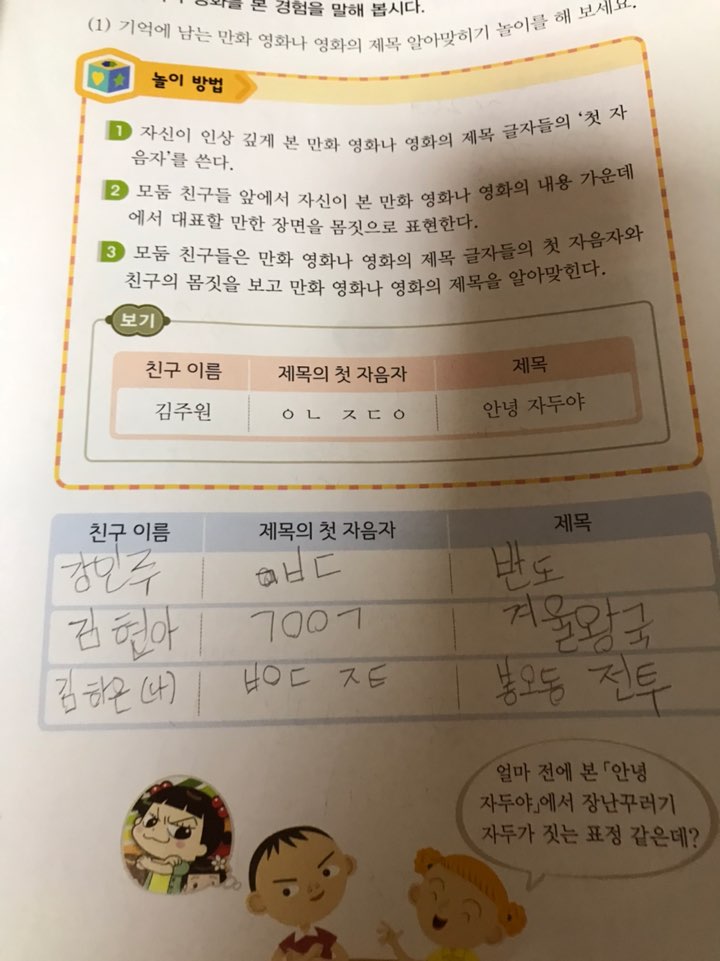 영화를 본 경험을 말해 봅시다.
(1) 기억에 남는 만화 영화나 영화의 제목 알아맞히기 놀이를 해 보세요.
놀이 방법
1 자신이 인상 깊게 본 만화 영화나 영화의 제목 글자들의 '첫 자
음자'를 쓴다.
2 모둠 친구들 앞에서 자신이 본 만화 영화나 영화의 내용 가운데
에서 대표할 만한 장면을 몸짓으로 표현한다.
3 모둠 친구들은 만화 영화나 영화의 제목 글자들의 첫 자음자와
친구의 몸짓을 보고 만화 영화나 영화의 제목을 알아맞힌다.
보기
친구 이름 제목의 첫 자음자 제목
김주원 ㅇㄴ ㅈㄷㅇ 안녕 자두야
친구 이름 제목의 첫 자음자 제목
강민주 ㅂㄷ 반도
김현아 ㄱㅇㅇㄱ 겨울왕국
김하온(나) ㅂㅇㄷ ㅈㅌ 봉오동 전투
얼마 전에 본 「안녕
자두야」에서 장난꾸러기
자두가 짓는 표정 같은데?